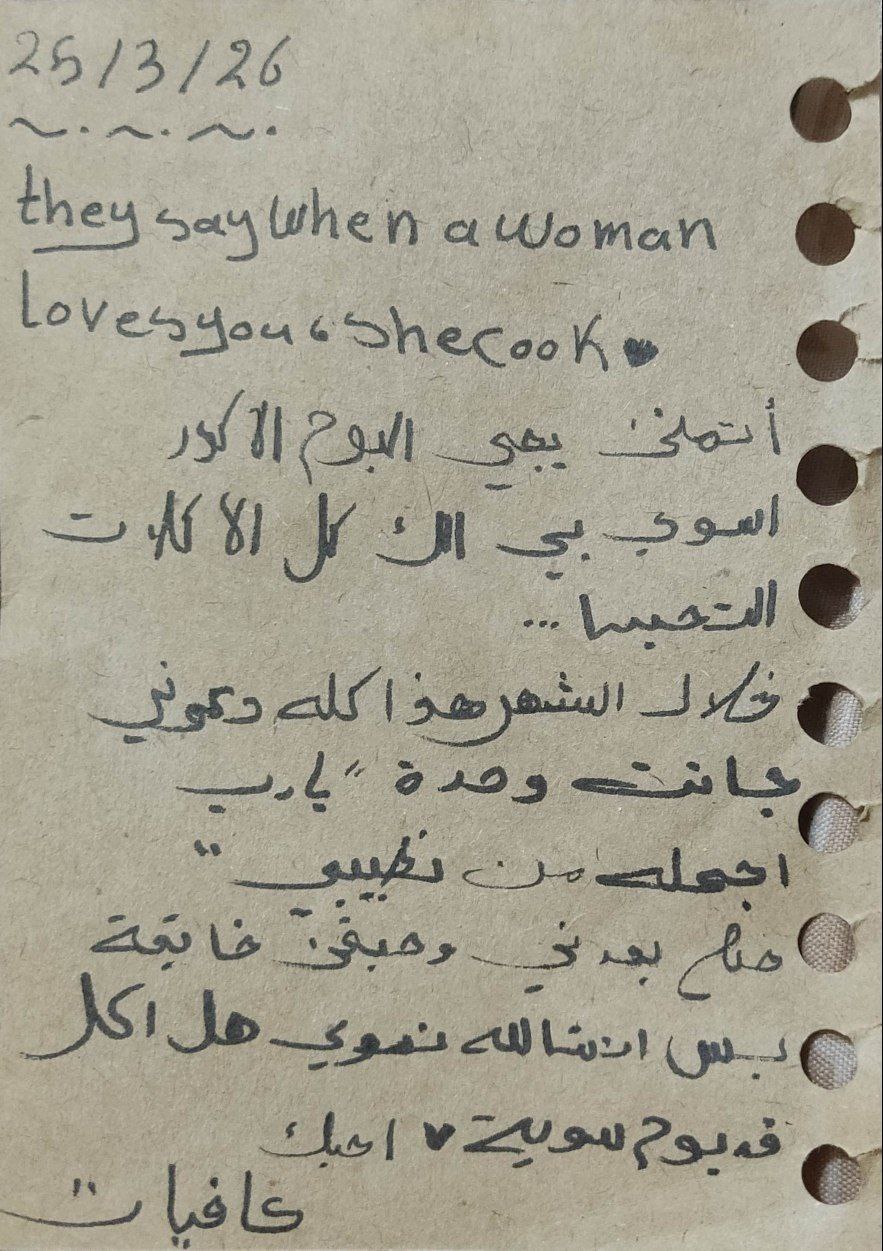 25/3/26
they say when a woman
loves you, she cook ♥
أتمنى يجي اليوم الاكدر
اسوي بي الك كل الاكلات
التحبها...
خلال الشهر هذا كله دعوتي
جانت وحدة "يارب
اجعله من نصيبي"
هنام بعدني وحبقى خايفة
بس انشالله نسوي هل اكل
فد يوم سوية ♥ احبك
عافيات